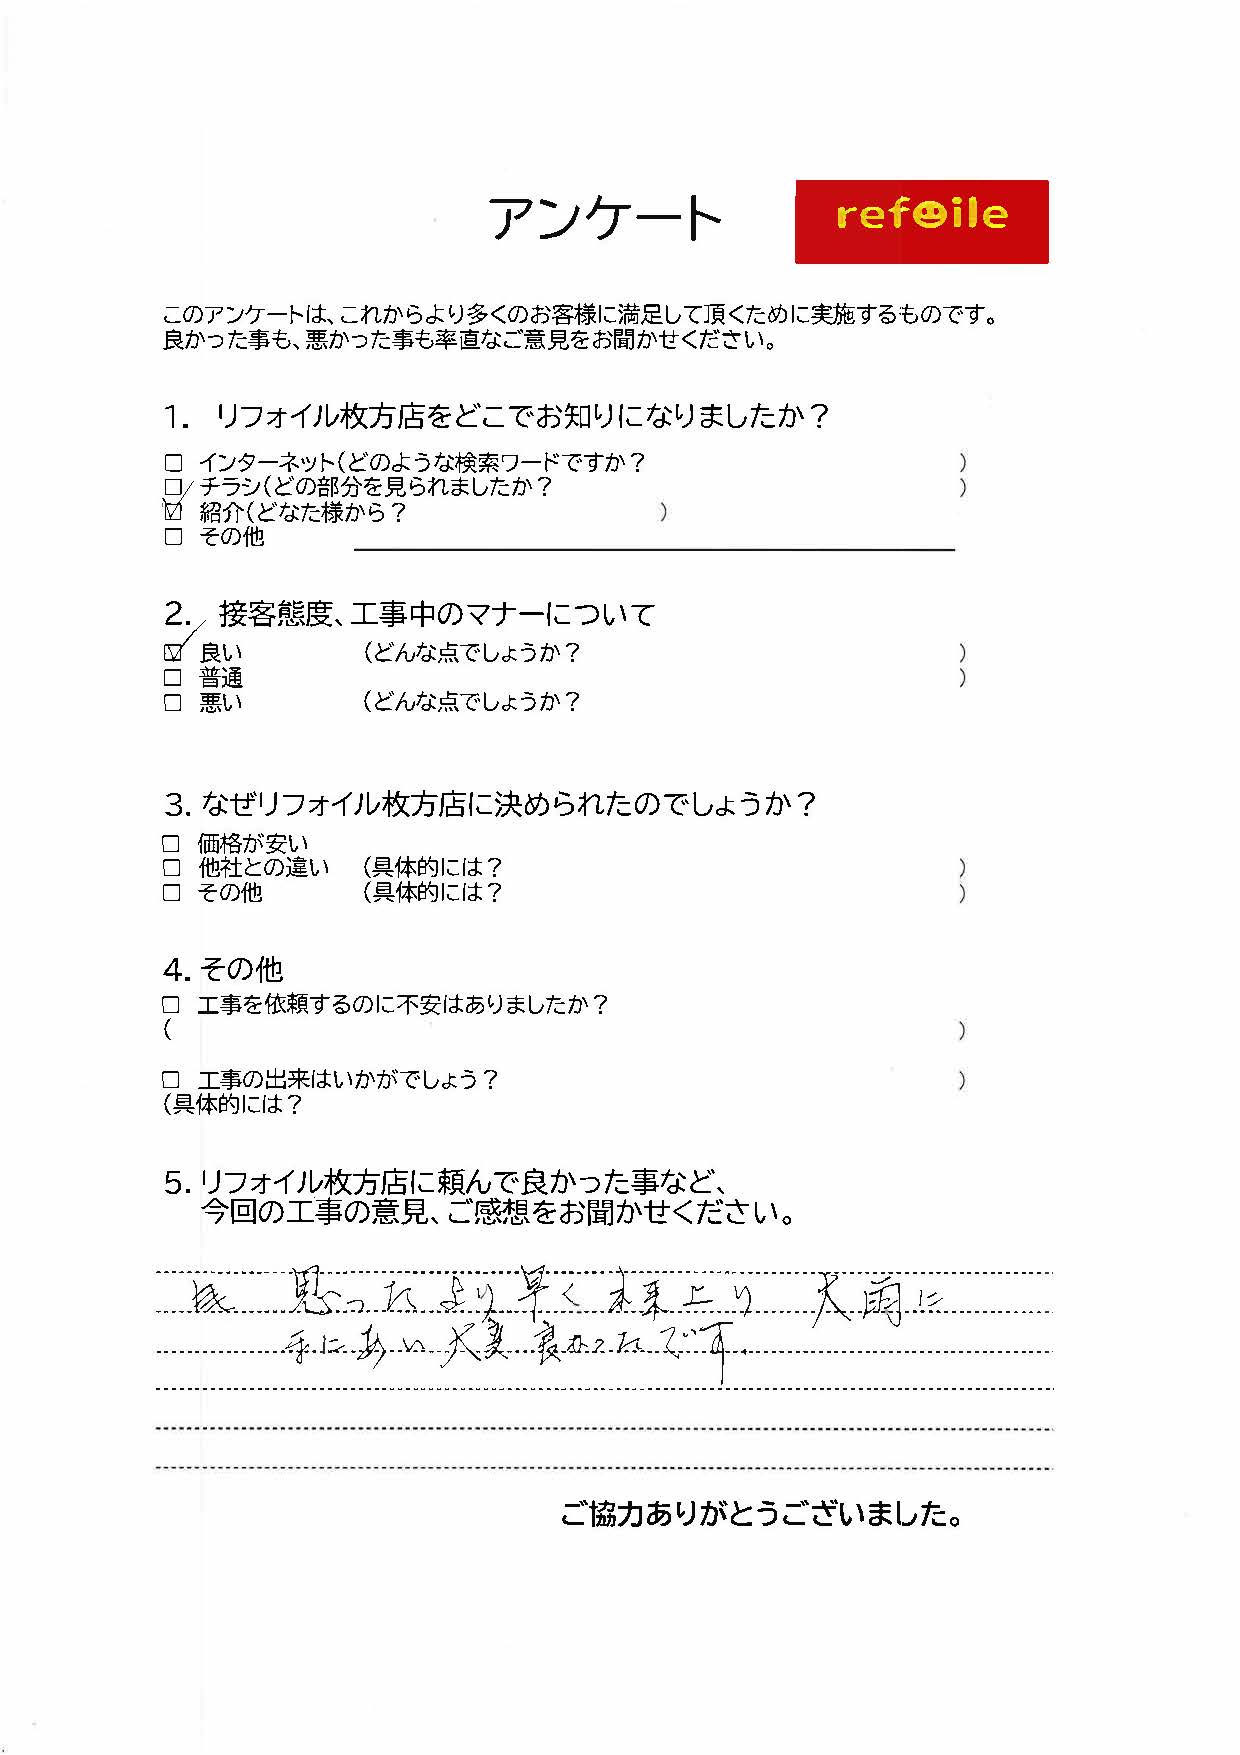 アンケート
refoile
このアンケートは、これからより多くのお客様に満足して頂くために実施するものです。
良かった事も、悪かった事も率直なご意見をお聞かせください。
1. リフォイル枚方店をどこでお知りになりましたか？
□ インターネット（どのような検索ワードですか？ ）
□ チラシ（どの部分を見られましたか？ ）
☑ 紹介（どなた様から？ ）
□ その他
2. 接客態度、工事中のマナーについて
☑ 良い （どんな点でしょうか？ ）
□ 普通 ）
□ 悪い （どんな点でしょうか？
3. なぜリフォイル枚方店に決められたのでしょうか？
□ 価格が安い
□ 他社との違い （具体的には？ ）
□ その他 （具体的には？ ）
4. その他
□ 工事を依頼するのに不安はありましたか？
（ ）
□ 工事の出来はいかがでしょう？ ）
（具体的には？
5. リフォイル枚方店に頼んで良かった事など、
今回の工事の意見、ご感想をお聞かせください。
思ったより早く 上り 大雨に
にあい大変良かったです.
ご協力ありがとうございました。